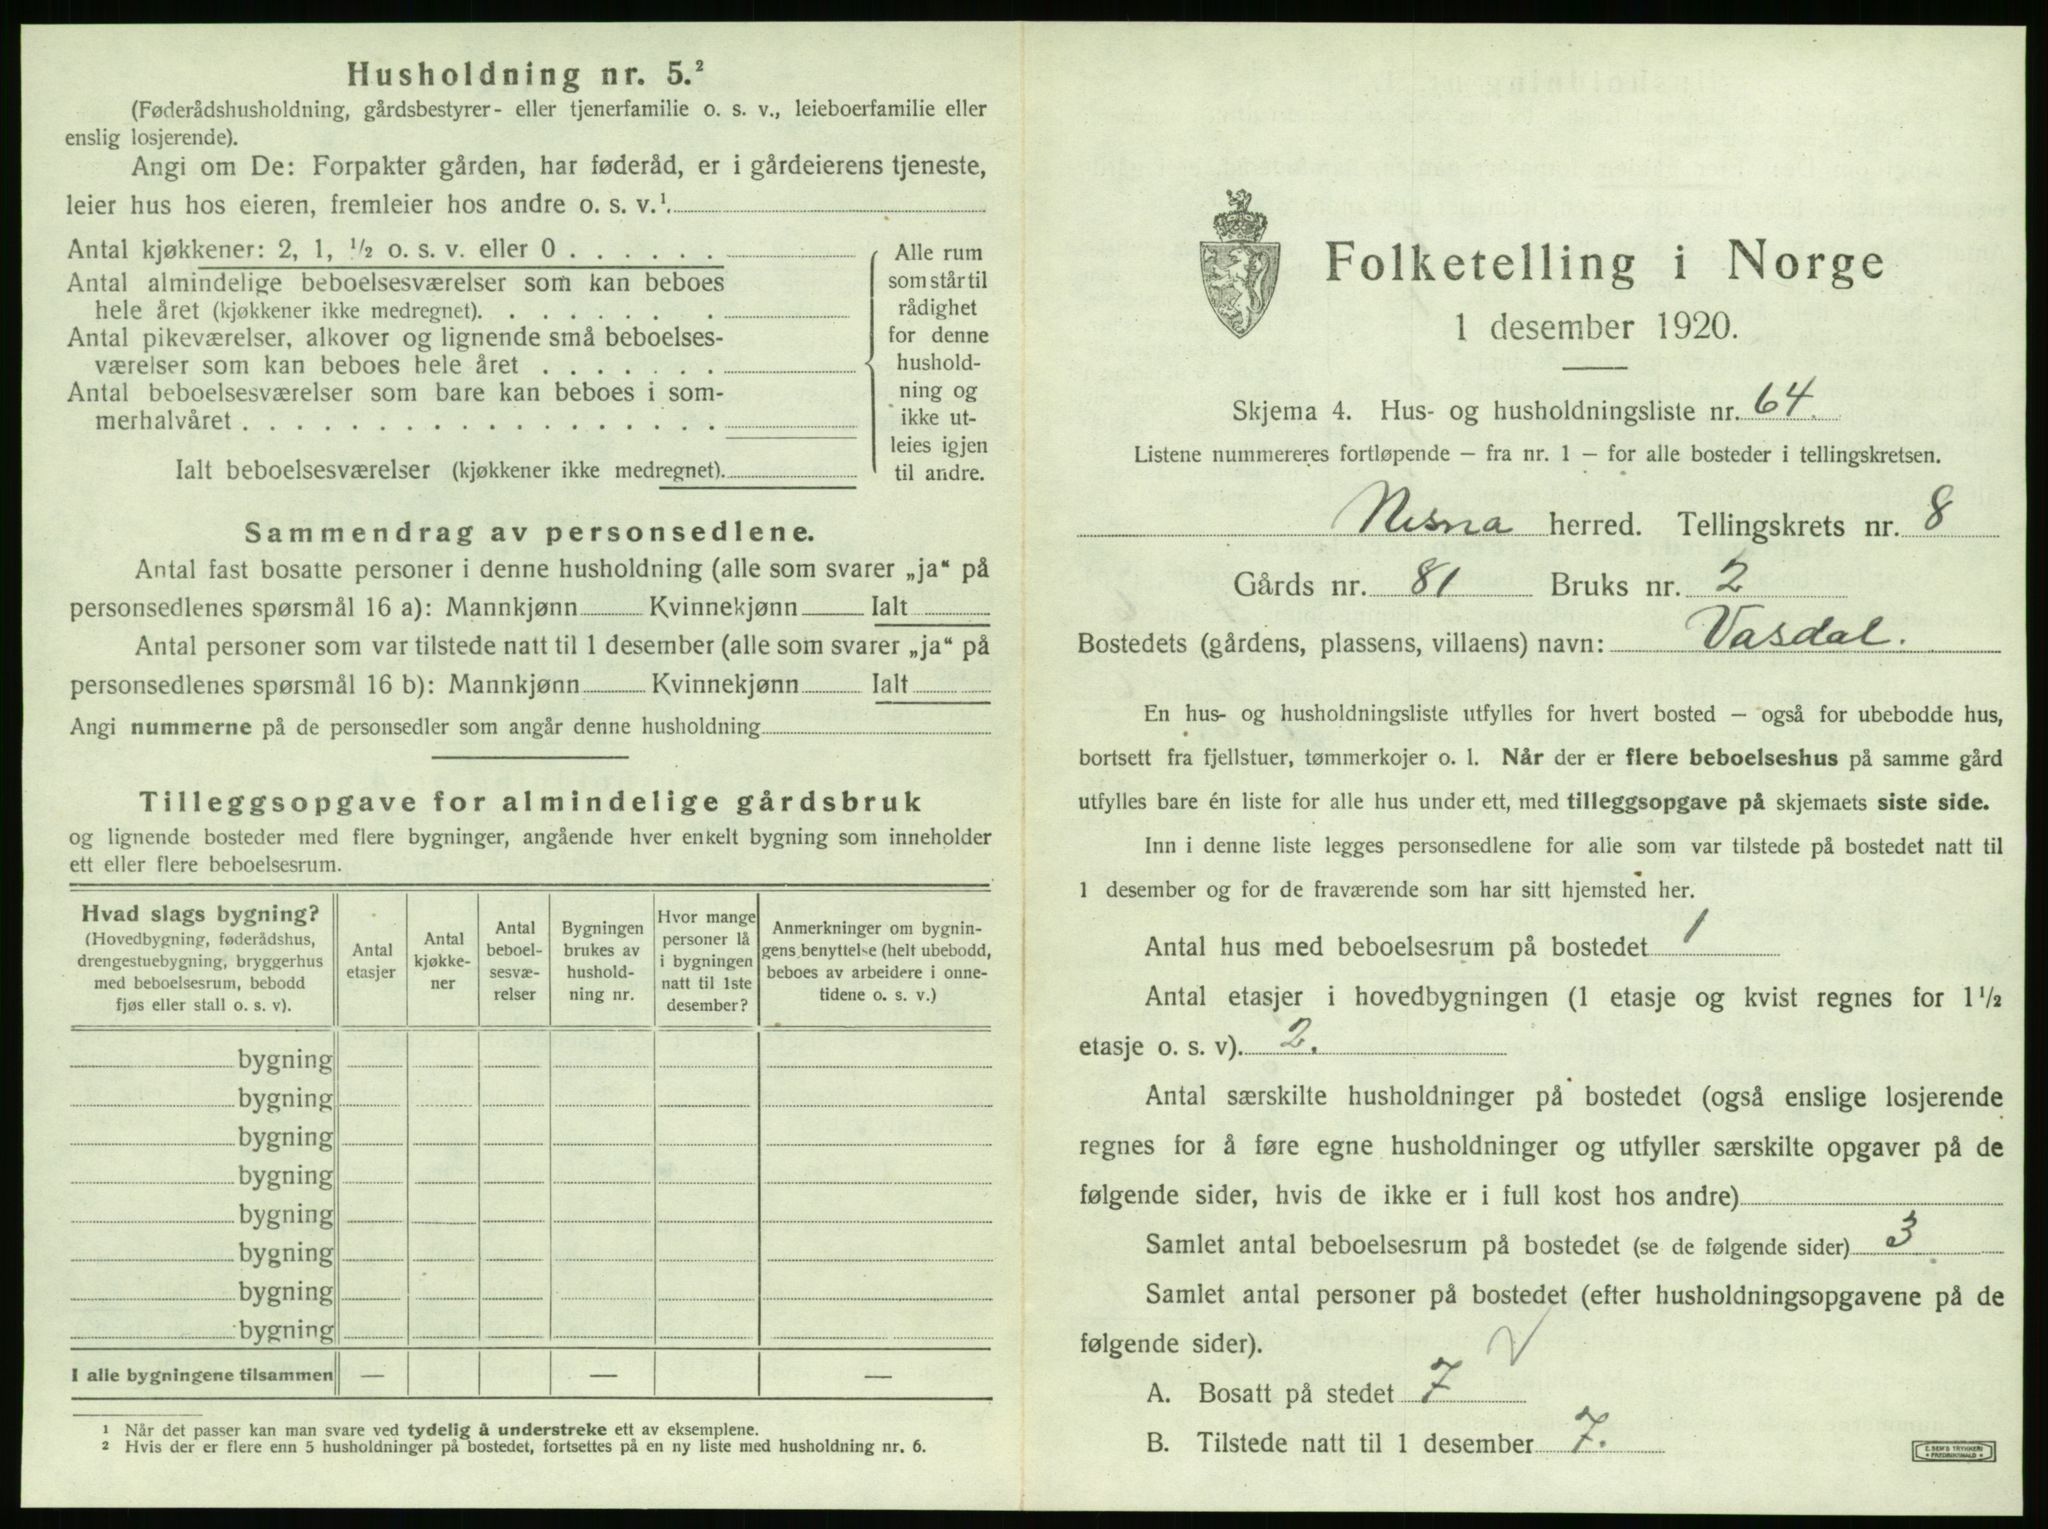 Husholdning nr. 5.²
(Føderådshusholdning, gårdsbestyrer- eller tjenerfamilie o. s. v., leieboerfamilie eller
enslig losjerende).
Angi om De: Forpakter gården, har føderåd, er i gårdeierens tjeneste,
leier hus hos eieren, fremleier hos andre o. s. v.¹
Antal kjøkkener: 2, 1, ½ o. s. v. eller 0 . . . . . .
Antal almindelige beboelsesværelser som kan beboes
hele året (kjøkkener ikke medregnet). . . . . . . .
Antal pikeværelser, alkover og lignende små beboelses-
værelser som kan beboes hele året . . . . . . .
Antal beboelsesværelser som bare kan beboes i som-
merhalvåret . . . . . . . . . . . . . . . . . .
Ialt beboelsesværelser (kjøkkener ikke medregnet).
Alle rum
som står til
rådighet
for denne
hushold-
ning og
ikke ut-
leies igjen
til andre.
Sammendrag av personsedlene.
Antal fast bosatte personer i denne husholdning (alle som svarer „ja“ på
personsedlenes spørsmål 16 a): Mannkjønn Kvinnekjønn Ialt
Antal personer som var tilstede natt til 1 desember (alle som svarer „ja“ på
personsedlenes spørsmål 16 b): Mannkjønn Kvinnekjønn Ialt
Angi nummerne på de personsedler som angår denne husholdning
Tilleggsopgave for almindelige gårdsbruk
og lignende bosteder med flere bygninger, angående hver enkelt bygning som inneholder
ett eller flere beboelsesrum.
Hvad slags bygning?
(Hovedbygning, føderådshus,
drengestuebygning, bryggerhus
med beboelsesrum, bebodd
fjøs eller stall o. s. v).
Antal
etasjer
Antal
kjøkke-
ner
Antal
beboel-
sesvæ-
relser
Bygningen
brukes av
hushold-
ning nr.
Hvor mange
personer lå
i bygningen
natt til 1ste
desember?
Anmerkninger om bygnin-
gens benyttelse (helt ubebodd,
beboes av arbeidere i onne-
tidene o. s. v.)
bygning
bygning
bygning
bygning
bygning
bygning
bygning
bygning
I alle bygningene tilsammen — — —
¹ Når det passer kan man svare ved tydelig å understreke ett av eksemplene.
² Hvis der er flere enn 5 husholdninger på bostedet, fortsettes på en ny liste med husholdning nr. 6.
Folketelling i Norge
1 desember 1920.
Skjema 4. Hus- og husholdningsliste nr. 64
Listene nummereres fortløpende – fra nr. 1 – for alle bosteder i tellingskretsen.
Nesna herred. Tellingskrets nr. 8
Gårds nr. 81 Bruks nr. 2
Bostedets (gårdens, plassens, villaens) navn: Vasdal.
En hus- og husholdningsliste utfylles for hvert bosted – også for ubebodde hus,
bortsett fra fjellstuer, tømmerkojer o. l. Når der er flere beboelseshus på samme gård
utfylles bare én liste for alle hus under ett, med tilleggsopgave på skjemaets siste side.
Inn i denne liste legges personsedlene for alle som var tilstede på bostedet natt til
1 desember og for de fraværende som har sitt hjemsted her.
Antal hus med beboelsesrum på bostedet 1
Antal etasjer i hovedbygningen (1 etasje og kvist regnes for 1½
etasje o. s. v). 2.
Antal særskilte husholdninger på bostedet (også enslige losjerende
regnes for å føre egne husholdninger og utfyller særskilte opgaver på de
følgende sider, hvis de ikke er i full kost hos andre)
Samlet antal beboelsesrum på bostedet (se de følgende sider) 3
Samlet antal personer på bostedet (efter husholdningsopgavene på de
følgende sider).
A. Bosatt på stedet 7
B. Tilstede natt til 1 desember 7.
E. SEM'S TRYKKERI
FREDRIKSHALD